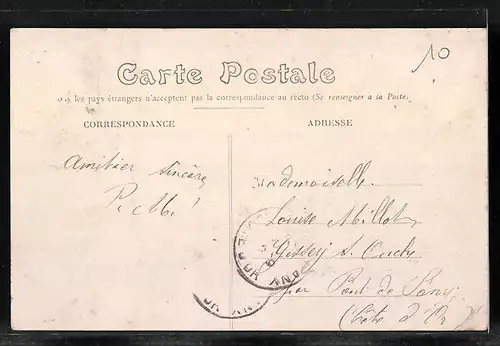 10
Carte Postale
les pays étrangers n'acceptent pas la correspondance au recto (Se renseigner a la Poste)
CORRESPONDANCE
ADRESSE
Amitiés sincères
P. M!
Mademoiselle
Louise Millot
Gissey s. Ouche
par Pont de Pany
(Côte d'Or)